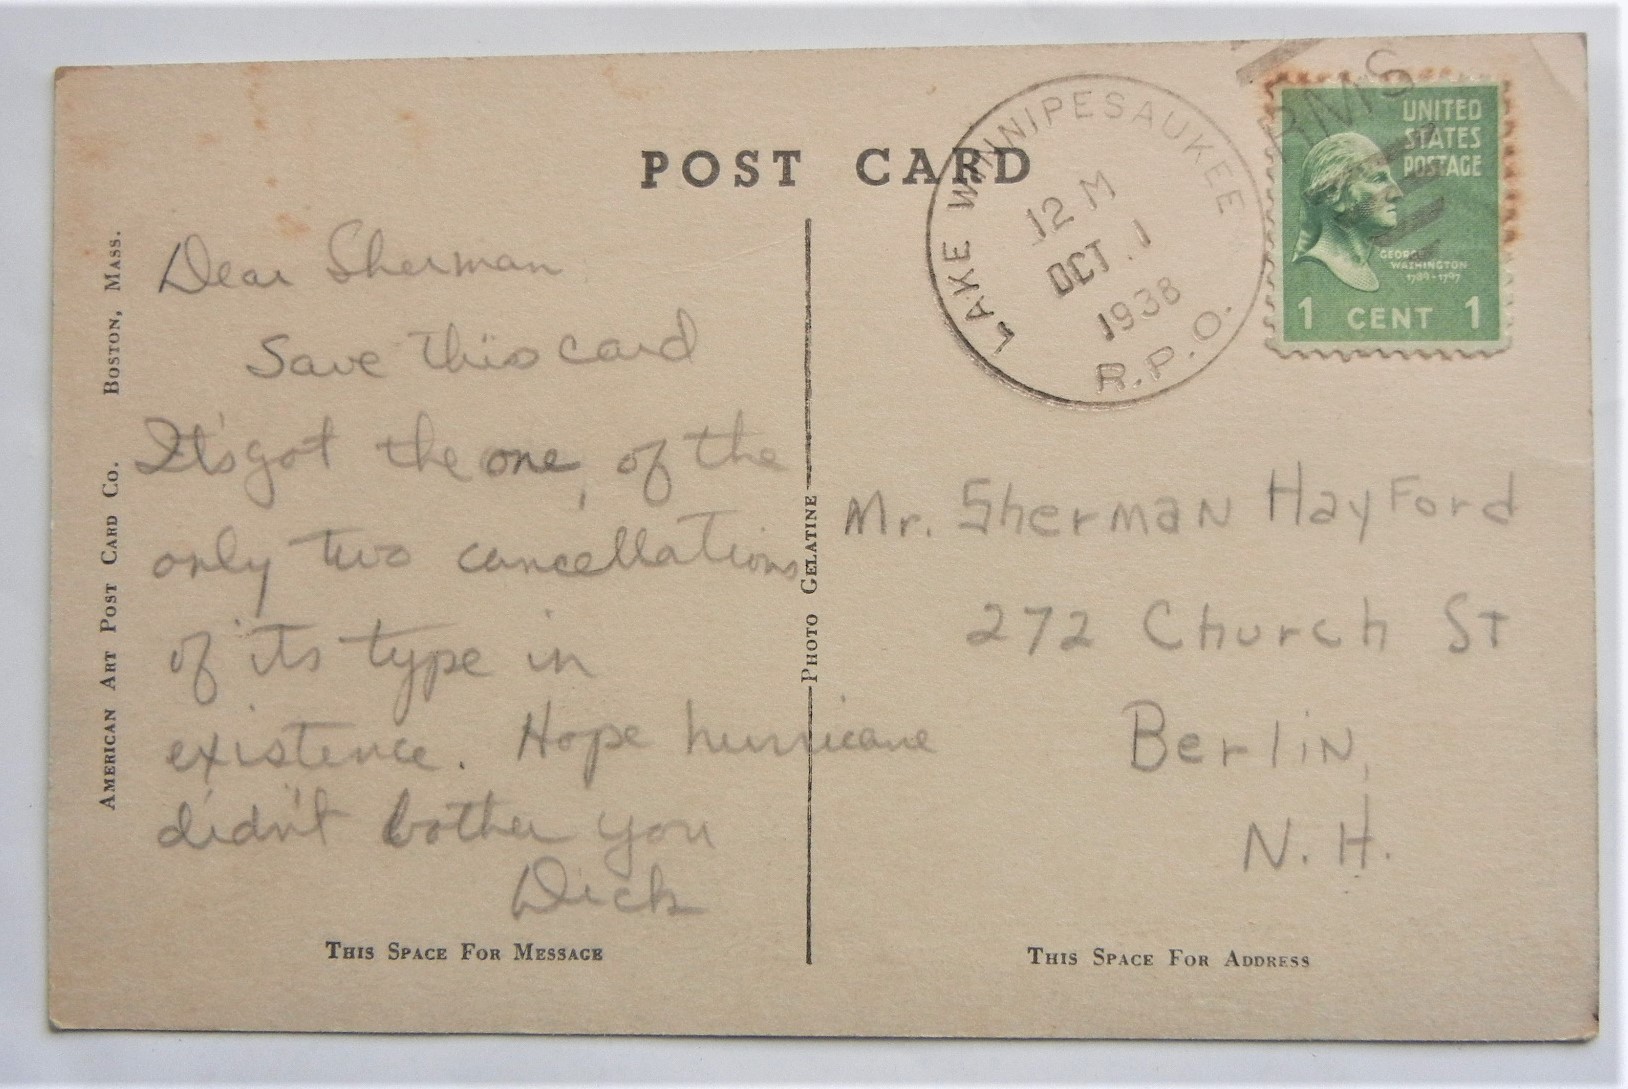 POST CARD
LAKE WINNIPESAUKEE
12 M
OCT. 1
1938
R.P.O.
RMS
UNITED
STATES
POSTAGE
GEORGE
WASHINGTON
1789-1797
1 CENT 1
AMERICAN ART POST CARD CO. BOSTON, MASS.
Dear Sherman
Save this card
It's got the one, of the
only two cancellations
of its type in
existence. Hope hurricane
didn't bother you
Dick
PHOTO GELATINE
Mr. Sherman HayFord
272 Church St
Berlin,
N.H.
THIS SPACE FOR MESSAGE
THIS SPACE FOR ADDRESS